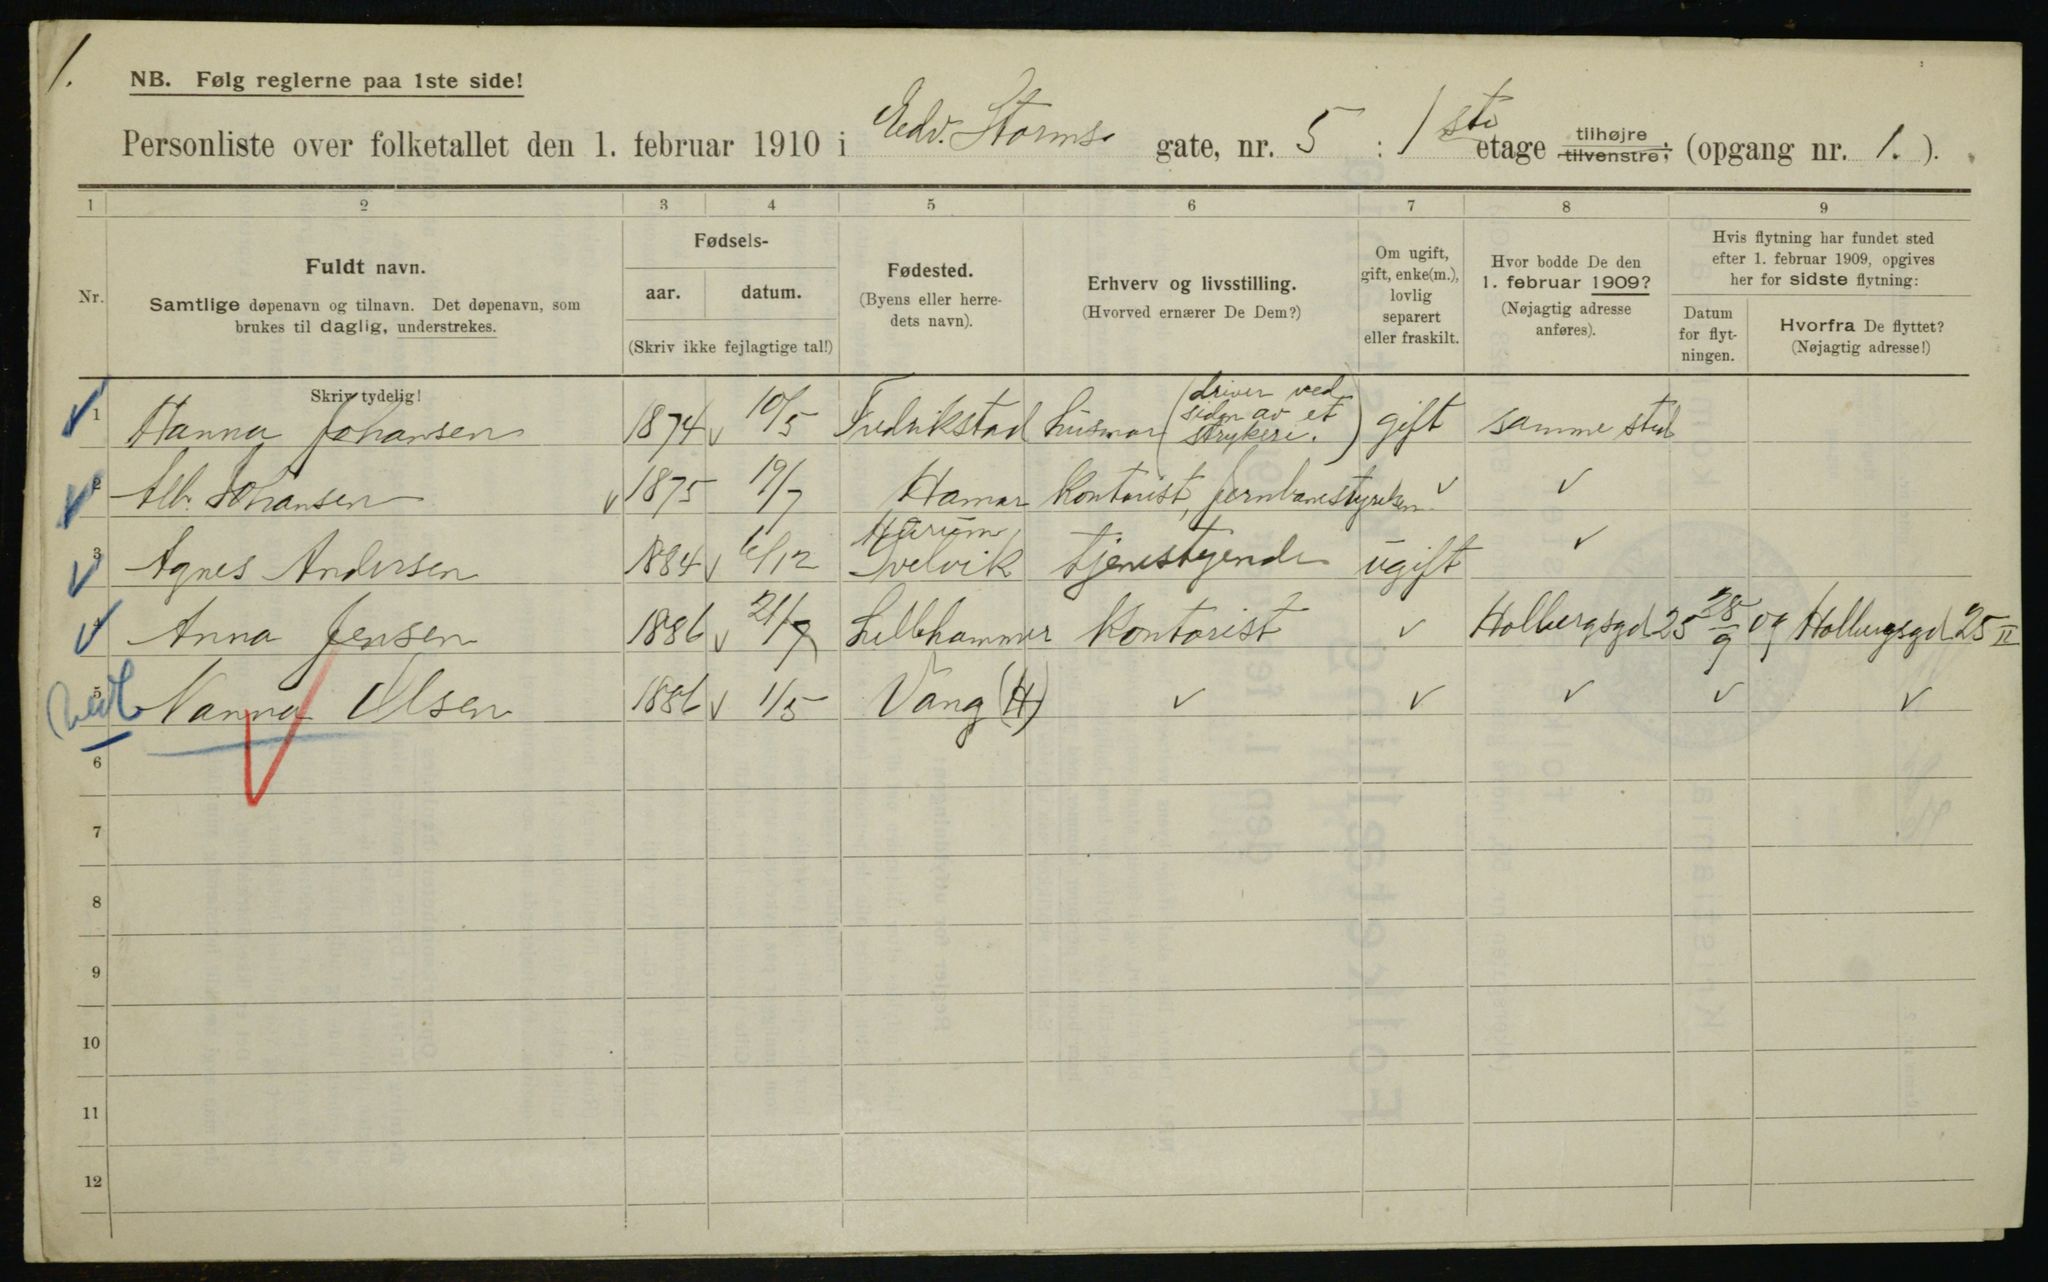 1.
NB. Følg reglerne paa 1ste side!
Personliste over folketallet den 1. februar 1910 i Edv. Storms gate, nr. 5 : 1 ste etage tilhøjre, tilvenstre, (opgang nr. 1. ).
1 2 3 4 5 6 7 8 9
Nr.
Fuldt navn.
Samtlige døpenavn og tilnavn. Det døpenavn, som
brukes til daglig, understrekes.
Skriv tydelig!
Fødsels-
aar. datum.
(Skriv ikke fejlagtige tal!)
Fødested.
(Byens eller herre-
dets navn).
Erhverv og livsstilling.
(Hvorved ernærer De Dem?)
Om ugift,
gift, enke(m.),
lovlig
separert
eller fraskilt.
Hvor bodde De den
1. februar 1909?
(Nøjagtig adresse
anføres).
Hvis flytning har fundet sted
efter 1. februar 1909, opgives
her for sidste flytning:
Datum
for flyt-
ningen.
Hvorfra De flyttet?
(Nøjagtig adresse!)
1 Hanna Johansen 1874 10/5 Fredrikstad husmor (driver ved siden av et strykeri.) gift samme sted
2 Alb. Johansen 1875 19/7 Hamar Kontorist, Jernbanestyrelsen ✓ ✓
3 Agnes Andersen 1884 6/12 Hurum Svelvik tjenestgjende ugift ✓
4 Anna Jensen 1886 21/7 Lillehammer Kontorist ✓ Holbergsgd 25 28/9 09 Holbergsgd 25 II
5 Nanna Olsen 1886 1/5 Vang (H) ✓ ✓ ✓ ✓ ✓
6
7
8
9
10
11
12